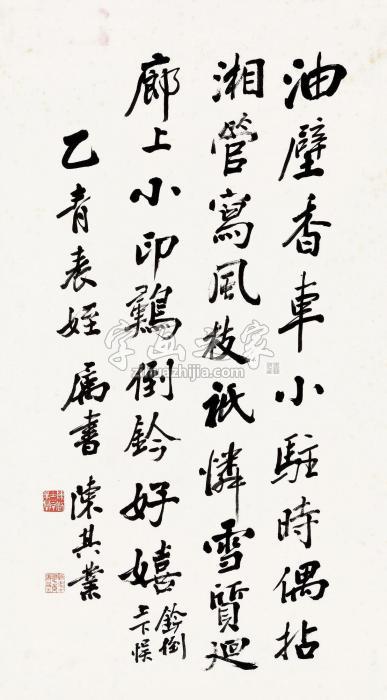 油壁香車小駐時偶拈
湘管寫風枝祇憐雪質迴
廊上小印倒鈐好嬉
鈐倒
上下悮
乙青表姪屬書 陳其業